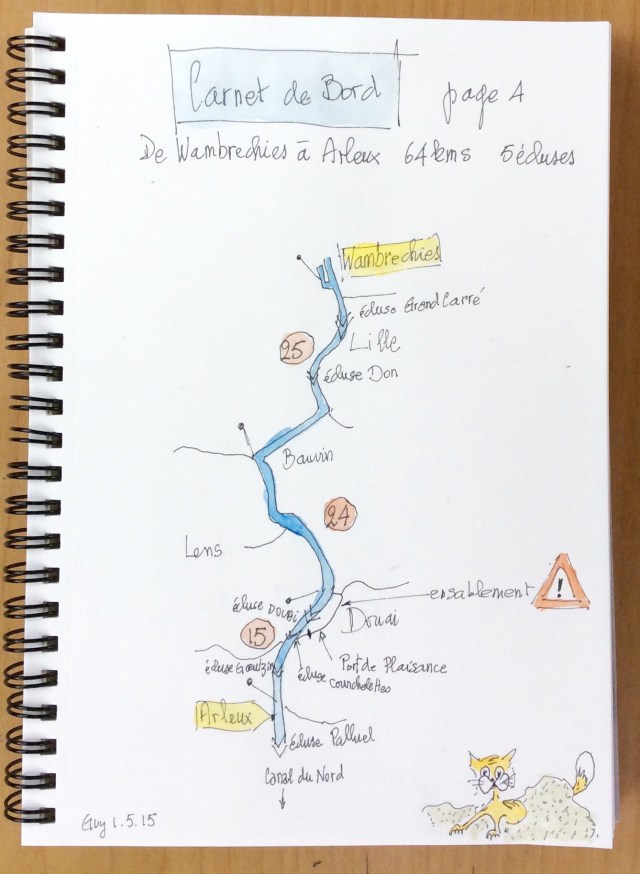 Carnet de Bord
page 4
De Wambrechies à Arleux 64 kms 5 écluses
Wambrechies
écluse Grand Carré
25
Lille
écluse Don
Bauvin
24
Lens
ensablement
!
écluse Douai
Douai
15
Port de Plaisance
écluse Goeulzin
écluse
Courchelettes
Arleux
écluse Palluel
Canal du Nord
Guy 1.5.15